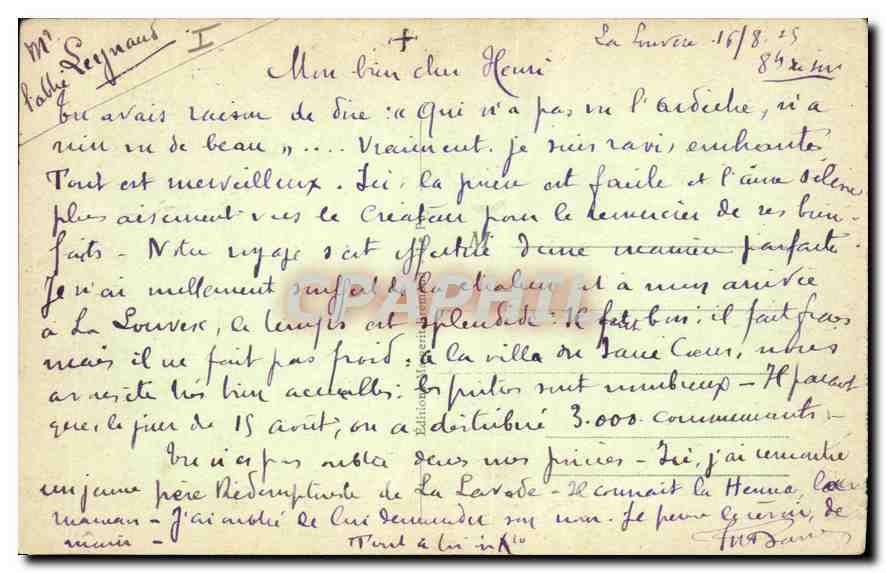 Mr
l'abbé Leynaud
I
+
La Louvesc 16/8.25
8h
Mon bien cher Henri
Tu avais raison de dire : « Qui n'a pas vu l'ardèche, n'a
rien vu de beau » .... Vraiment je suis ravi, enchanté
Tout est merveilleux. Ici, la prière est facile et l'âme s'élève
plus aisement vers le Créateur pour le remercier de ses bien-
faits - Notre voyage s'est effectué d'une manière parfaite.
Je n'ai nullement souffert de la chaleur et à mon arrivée
à La Louvesc, le temps est splendide : il fait bon, il fait frais
mais il ne fait pas froid : à la villa du Sacré Coeur, nous
avons été très bien accueillis : les prêtres sont nombreux - Il parait
que, le jour de 15 août, on a distribué 3.000 communions -
Tu n'es pas oublié dans mes prières - Ici, j'ai rencontré
un jeune père Rédemptoriste de La - Il connait la
maman - J'ai oublié de lui demander son nom. Je pense de
Tout à toi in Xto
Edition
CPAPHIL